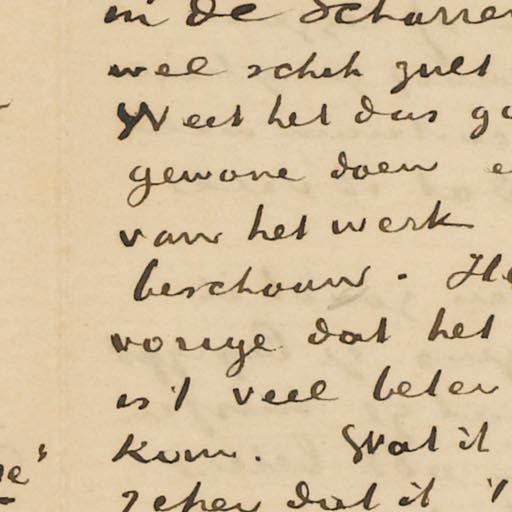 in de Schurre
wel schik zult
Weet het dus go
gewone doen e
van het werk
beschouw. He
vorige dat het
is 't veel beter
kom. Wat it
zeker dat it '